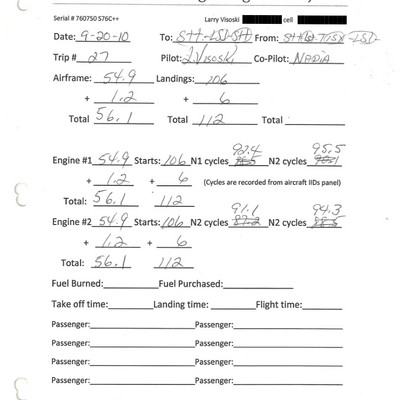 Serial # 760750 S76C++ Larry Visoski cell
Date: 9-20-10 To: From:
Trip # 27 Pilot: L.Visoski Co-Pilot: NADIA
Airframe: 54.9 Landings: 106
+ 1.2 + 6
Total 56.1 Total 112 Total
92.4 95.5
Engine #1 54.9 Starts: 106 N1 cycles N2 cycles
+ 1.2 + 6 (Cycles are recorded from aircraft IIDs panel)
Total: 56.1 112
91.1 94.3
Engine #2 54.9 Starts: 106 N2 cycles 87.2 N2 cycles 88.5
+ 1.2 + 6
Total: 56.1 112
Fuel Burned: Fuel Purchased:
Take off time: Landing time: Flight time:
Passenger: Passenger:
Passenger: Passenger:
Passenger: Passenger:
Passenger: Passenger: